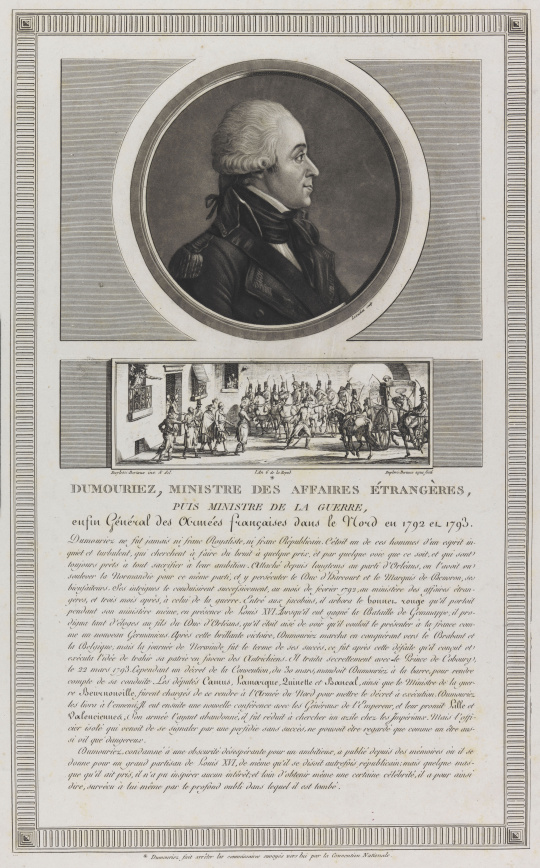 Duplessi-Bertaux inv. & del.
L'An 6 de la Répub.
Duplessi-Bertaux aqua forti
*
DUMOURIEZ, MINISTRE DES AFFAIRES ÉTRANGÈRES,
PUIS MINISTRE DE LA GUERRE,
enfin Général des Armées françaises dans le Nord en 1792 et 1793.
Dumouriez ne fut jamais ni franc Royaliste, ni franc Républicain. C'étoit un de ces hommes d'un esprit in-
quiet et turbulent, qui cherchent à faire du bruit à quelque prix, et par quelque voie que ce soit, et qui sont
toujours prêts à tout sacrifier à leur ambition. Attaché depuis longtems au parti d'Orléans, on l'avoit vu
soulever la Normandie pour ce même parti, et y persécuter le Duc d'Harcourt et le Marquis de Beuvron, ses
bienfaiteurs. Ses intrigues le conduisirent successivement, au mois de février 1792, au ministère des affaires étran-
gères, et trois mois après, à celui de la guerre. Livré aux jacobins, il arbora le bonnet rouge qu'il portoit
pendant son ministère même, en présence de Louis XVI. Lorsqu'il eut gagné la Bataille de Gemmappe, il pro-
digua tant d'éloges au fils du Duc d'Orléans, qu'il étoit aisé de voir qu'il vouloit le présenter à la france com-
me un nouveau Germanicus. Après cette brillante victoire, Dumouriez marcha en conquérant vers le Brabant et
la Belgique, mais la journée de Nerwinde fut le terme de ses succès, ce fut après cette défaite qu'il conçut et
exécuta l'idée de trahir sa patrie en faveur des Autrichiens. Il traita secrettement avec le Prince de Cobourg,
le 22 mars 1793. Cependant un décret de la Convention, du 30 mars, mandoit Dumouriez, à la barre, pour rendre
compte de sa conduite. Les députés Camus, Lamarque, Quinette et Bancal, ainsi que le Ministre de la guer-
re Beurnonville, furent chargés de se rendre à l'Armée du Nord pour mettre le décret à exécution. Dumouriez,
les livra à l'ennemi. Il eut ensuite une nouvelle conférence avec les Généraux de l'Empereur, et leur promit Lille et
Valenciennes. Son armée l'ayant abandonné, il fut réduit à chercher un azile chez les Impériaux. Mais l'offi-
cier isolé qui venoit de se signaler par une perfidie sans succès, ne pouvoit être regardé que comme un être aus-
si vil que dangereux.
Dumouriez, condamné à une obscurité désespérante pour un ambitieux, a publié depuis des mémoires où il se
donne pour un grand partisan de Louis XVI, de même qu'il se disoit autrefois républicain; mais quelque mas-
que qu'il ait pris, il n'a pu inspirer aucun intérêt; et loin d'obtenir même une certaine célébrité, il a pour ainsi
dire, survécu à lui même par le profond oubli dans lequel il est tombé.
* Dumouriez, fait arrêter les commissaires envoyés vers lui par la Convention Nationale.